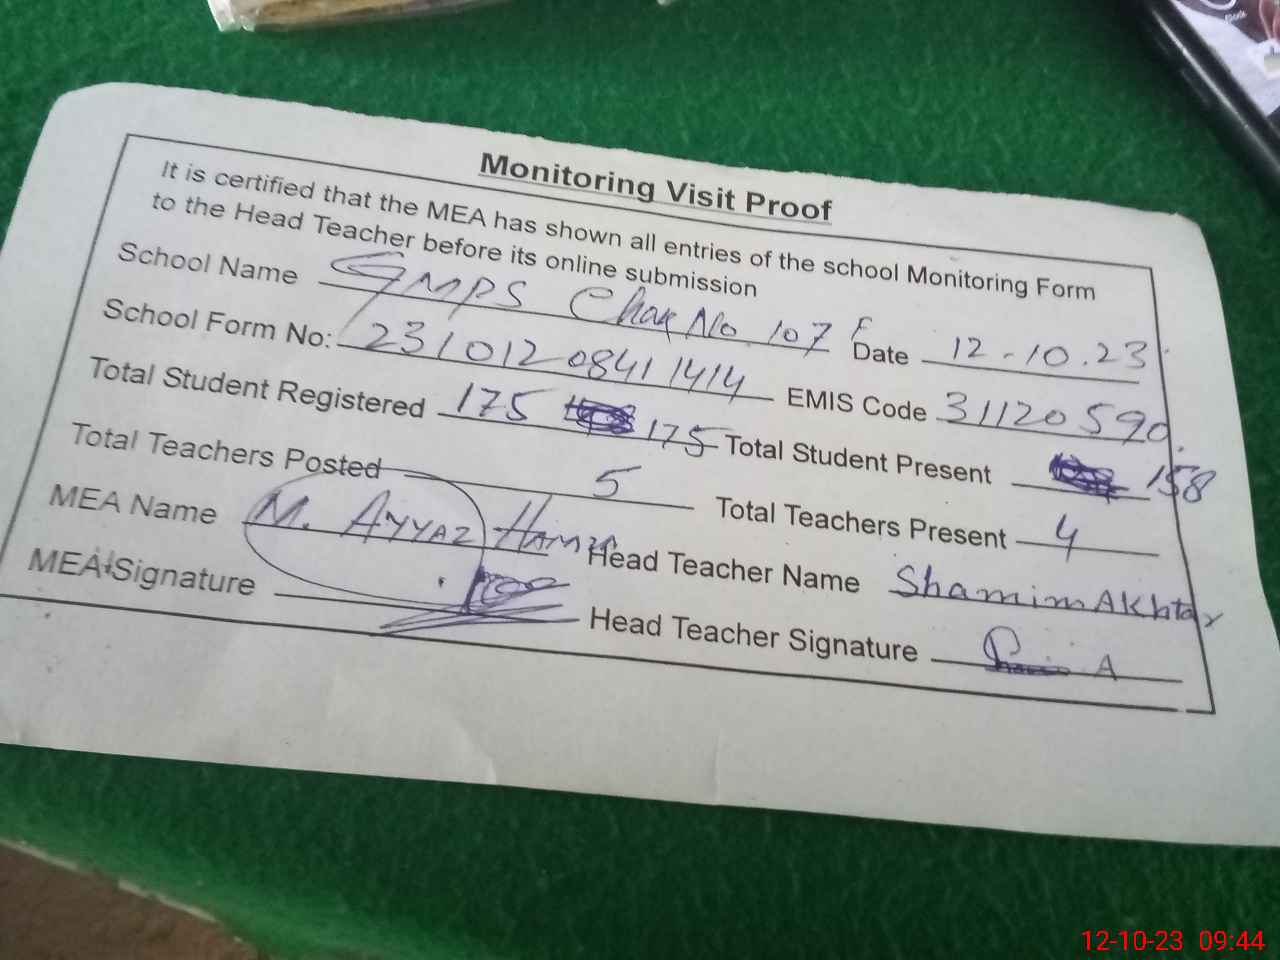 Monitoring Visit Proof
It is certified that the MEA has shown all entries of the school Monitoring Form
to the Head Teacher before its online submission
School Name GMPS Chak No. 107 F Date 12-10.23
School Form No: 23101208411414 EMIS Code 31120590.
Total Student Registered 175 175 Total Student Present 158
Total Teachers Posted 5 Total Teachers Present 4
MEA Name M. AYYAZ HAMZA Head Teacher Name Shamim Akhtar
MEA Signature Head Teacher Signature
12-10-23 09:44